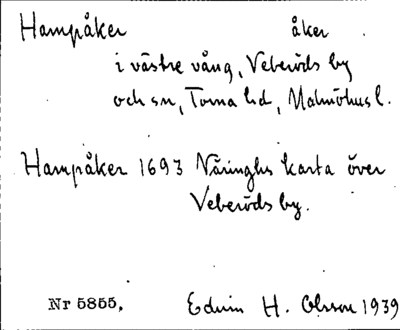 Hampåker åker
i västre vång, Veberöds by
och sn, Torna hd, Malmöhus l.
Hampåker 1693 Näringhs karta över
Veberöds by.
Nr 5855, Edwin H. Olsson 1939